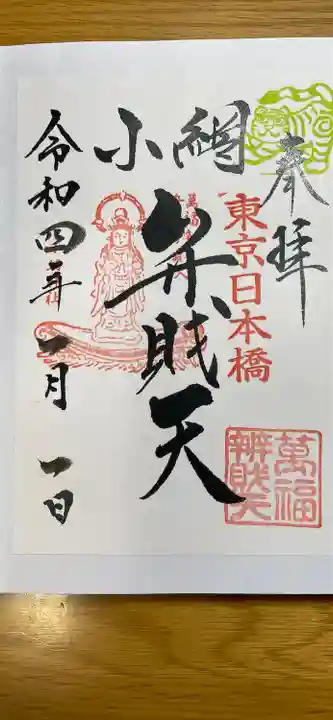 奉拝
東京日本橋
小網
弁財天
萬福
辨財天
令和四年 一月 一日